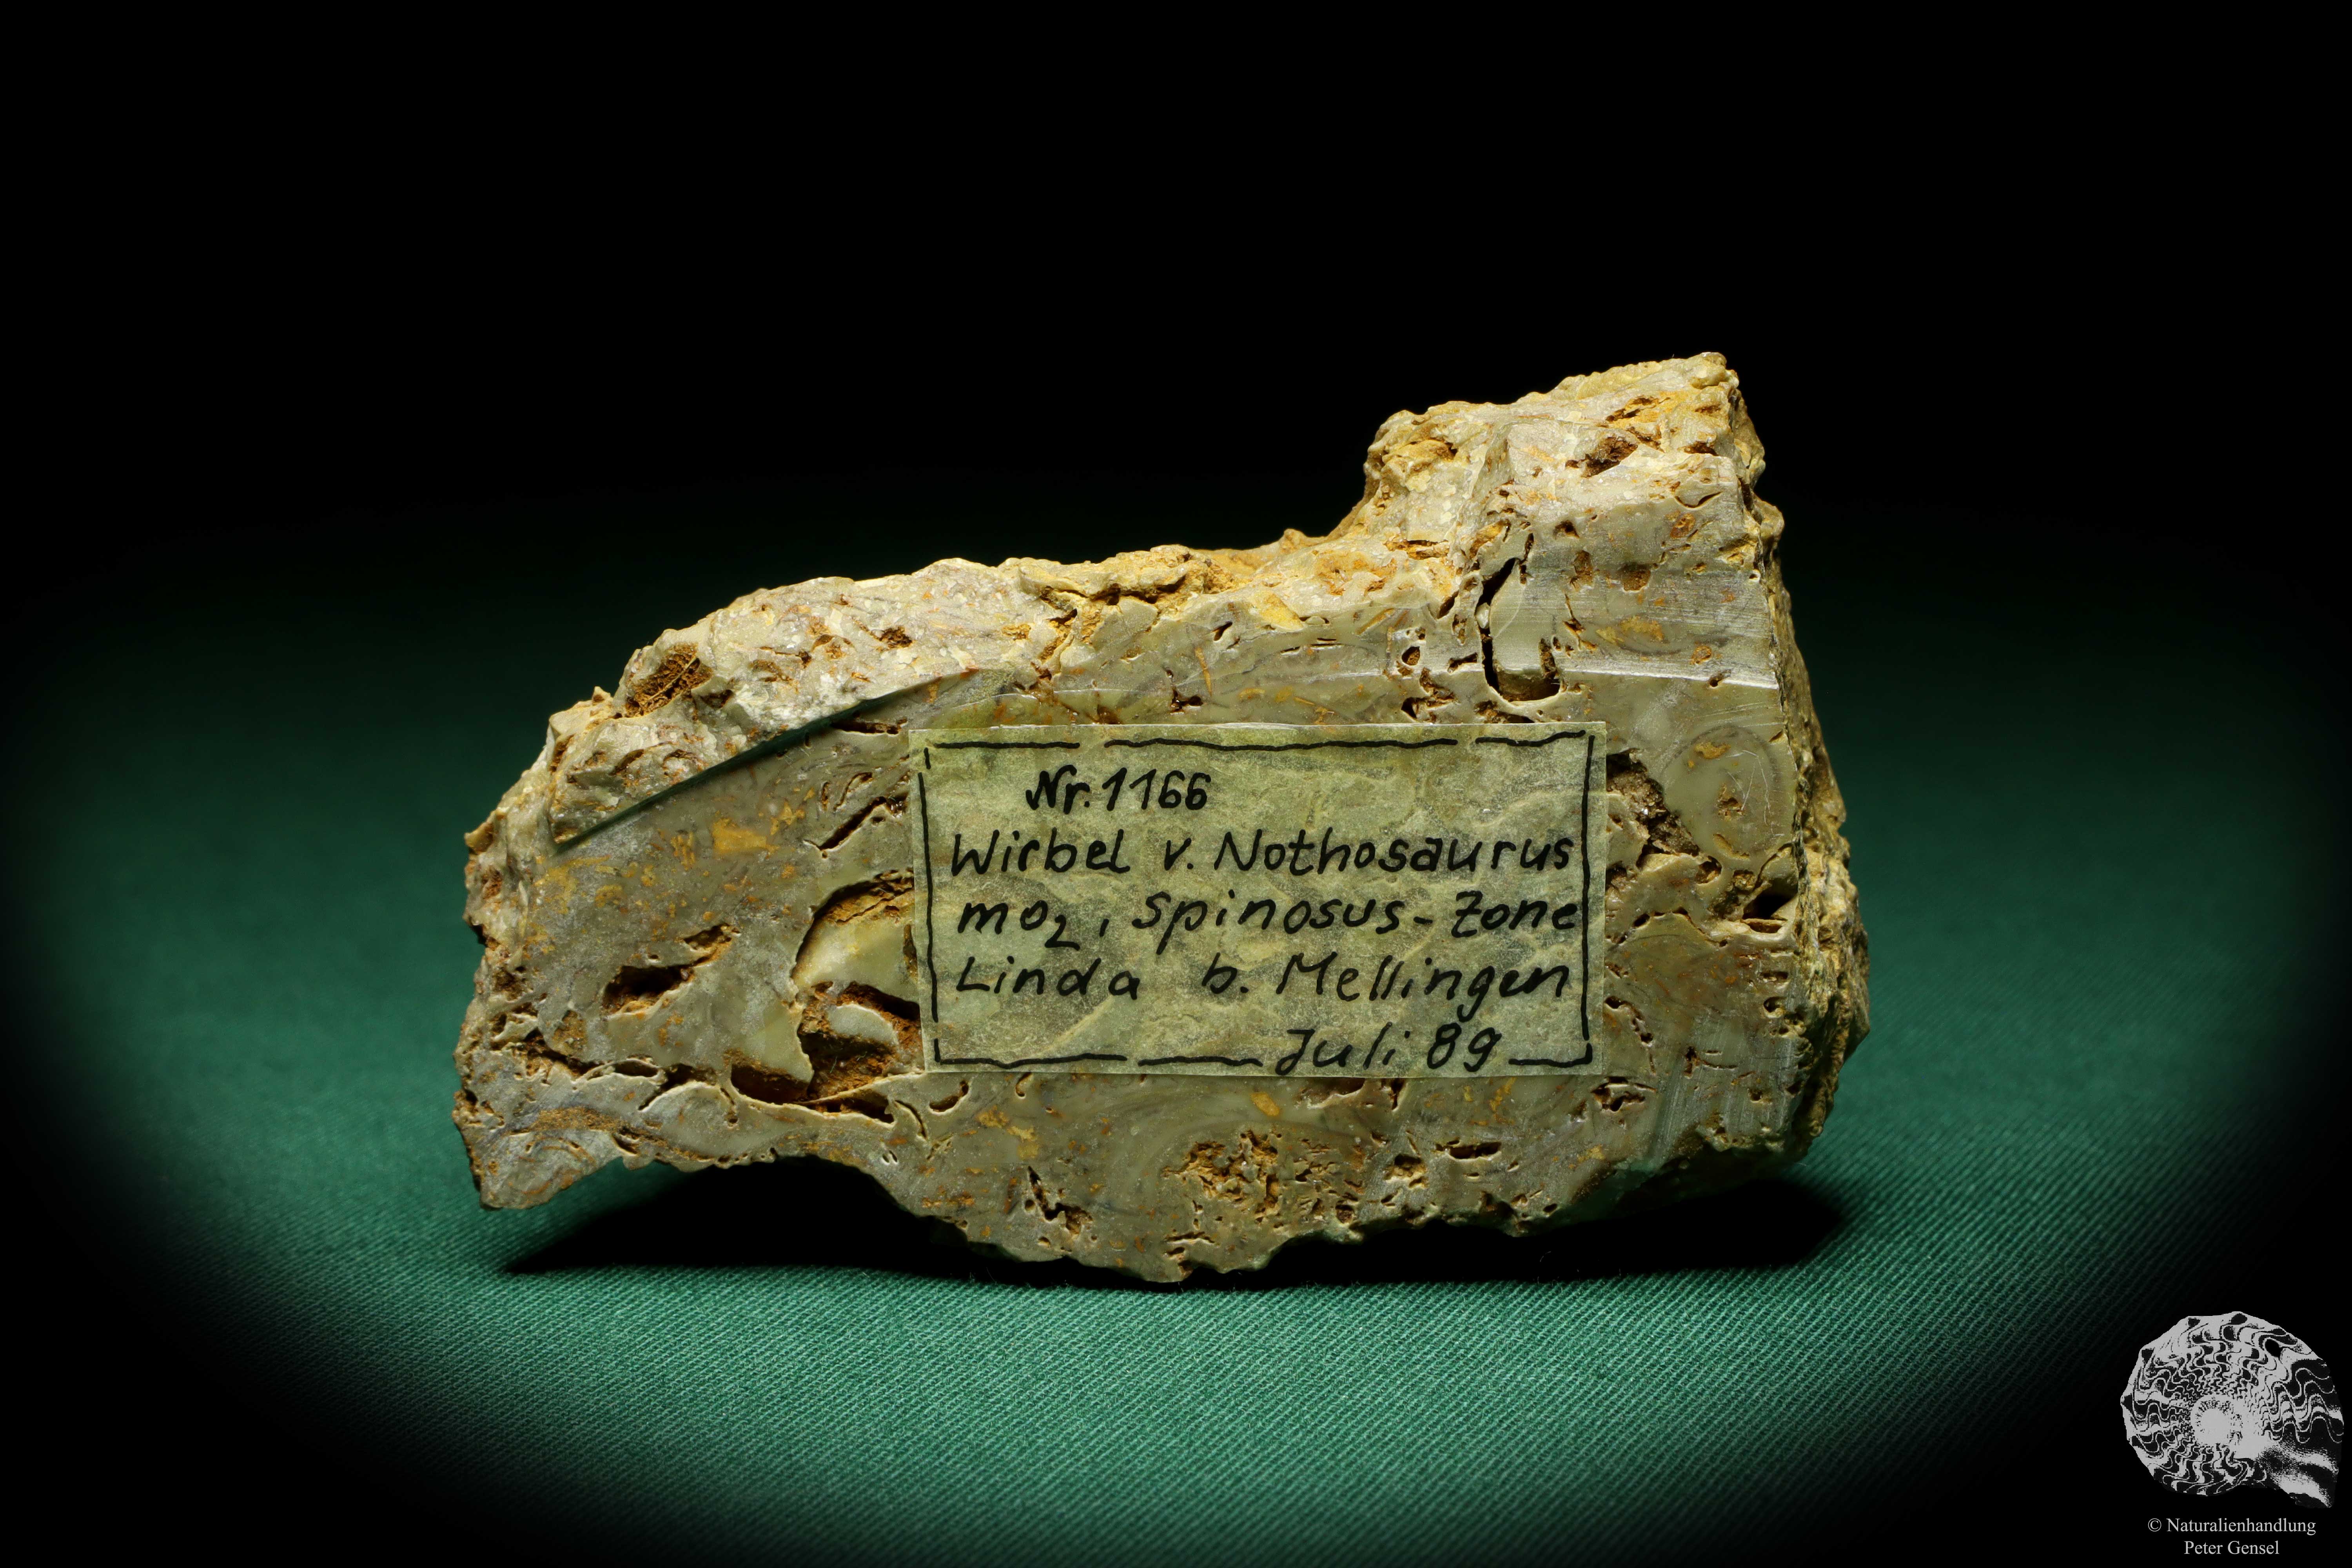 Nr. 1166
Wirbel v. Nothosaurus
mo₂, spinosus-Zone
Linda b. Mellingen
Juli 89
© Naturalienhandlung
Peter Gensel